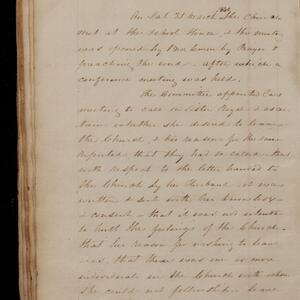 On Sat 21 March 1840 The Church
met at the School House, & the meeting
was opened by Bro. by Prayer &
preaching the word. after which a
conference meeting was held.
The Committee appointed last
meeting to call on Sister & ascer-
tain whether she desired to leave
the Church & her reasons for the same
reported, that they had so called & that
with respect to the letter handed to
the Church by her Husband it was
written & sent with her knowledge
& consent — that it was not intended
to hurt the feelings of the Church —
that her reason for wishing to leave
was, that there was one or more
individuals in the Church with whom
she could not fellowship & leave